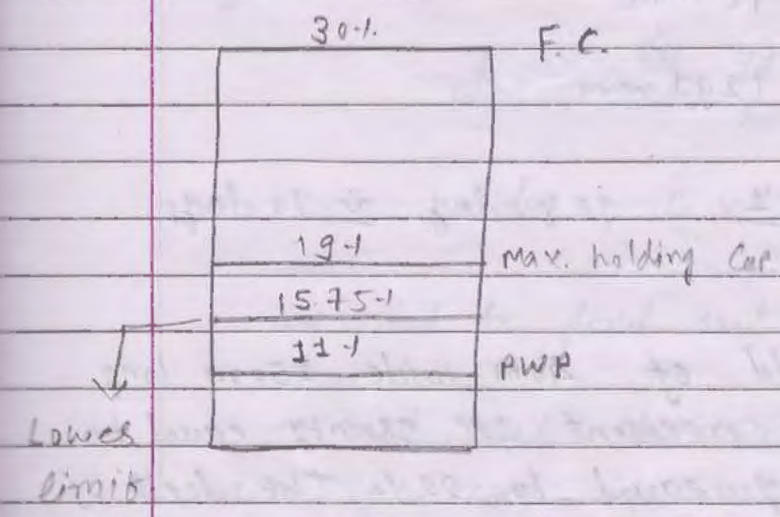 30·/. F.C.
19·/ Max. holding Cap
15.75·/
11·/ PWP
Lower
limit